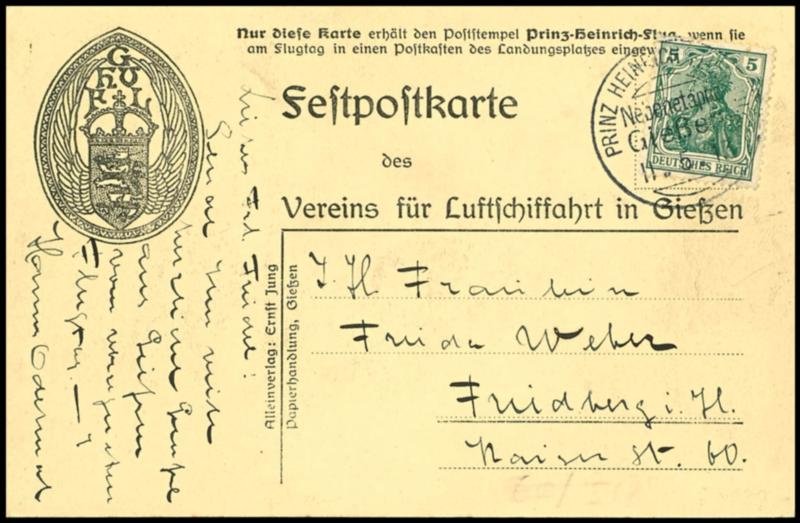 Nur diese Karte erhält den Poststempel Prinz-Heinrich-Flug, wenn sie
am Flugtag in einen Postkasten des Landungsplatzes
G
H V
F L
Festpostkarte
des
Vereins für Luftschiffahrt in Gießen
PRINZ HEINRICH
Nebenetappe
Gießen
5 5
DEUTSCHES REICH
Alleinverlag: Ernst Jung
Papierhandlung, Gießen
I. H. Fräulein
Frieda Weber
Friedberg i. H.
Kaiser St. 60.
Liebes Frl. Friedel!
herzliche
aus Gießen
vom
Flugtag. —